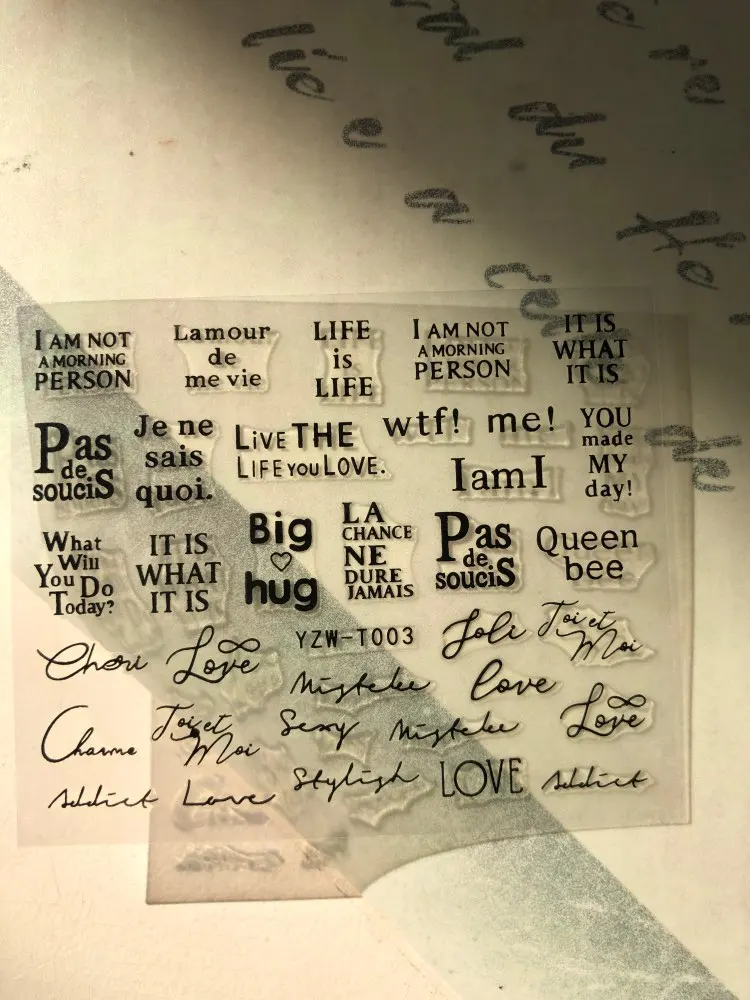 I AM NOT
A MORNING
PERSON
Lamour
de
me vie
LIFE
is
LIFE
I AM NOT
A MORNING
PERSON
IT IS
WHAT
IT IS
Pas
de
souciS
Je ne
sais
quoi.
LiVE THE
LIFE you LOVE.
wtf! me!
I am I
YOU
made
MY
day!
What
Will
You Do
Today?
IT IS
WHAT
IT IS
Big
hug
LA
CHANCE
NE
DURE
JAMAIS
Pas
de
souciS
Queen
bee
Cheri
Love
YZW-T003
Joli
Toi et
Moi
Misteke
Love
Charme
Toi et
Moi
Sexy
Misteke
Love
Addict
Love
Stylish
LOVE
Addict